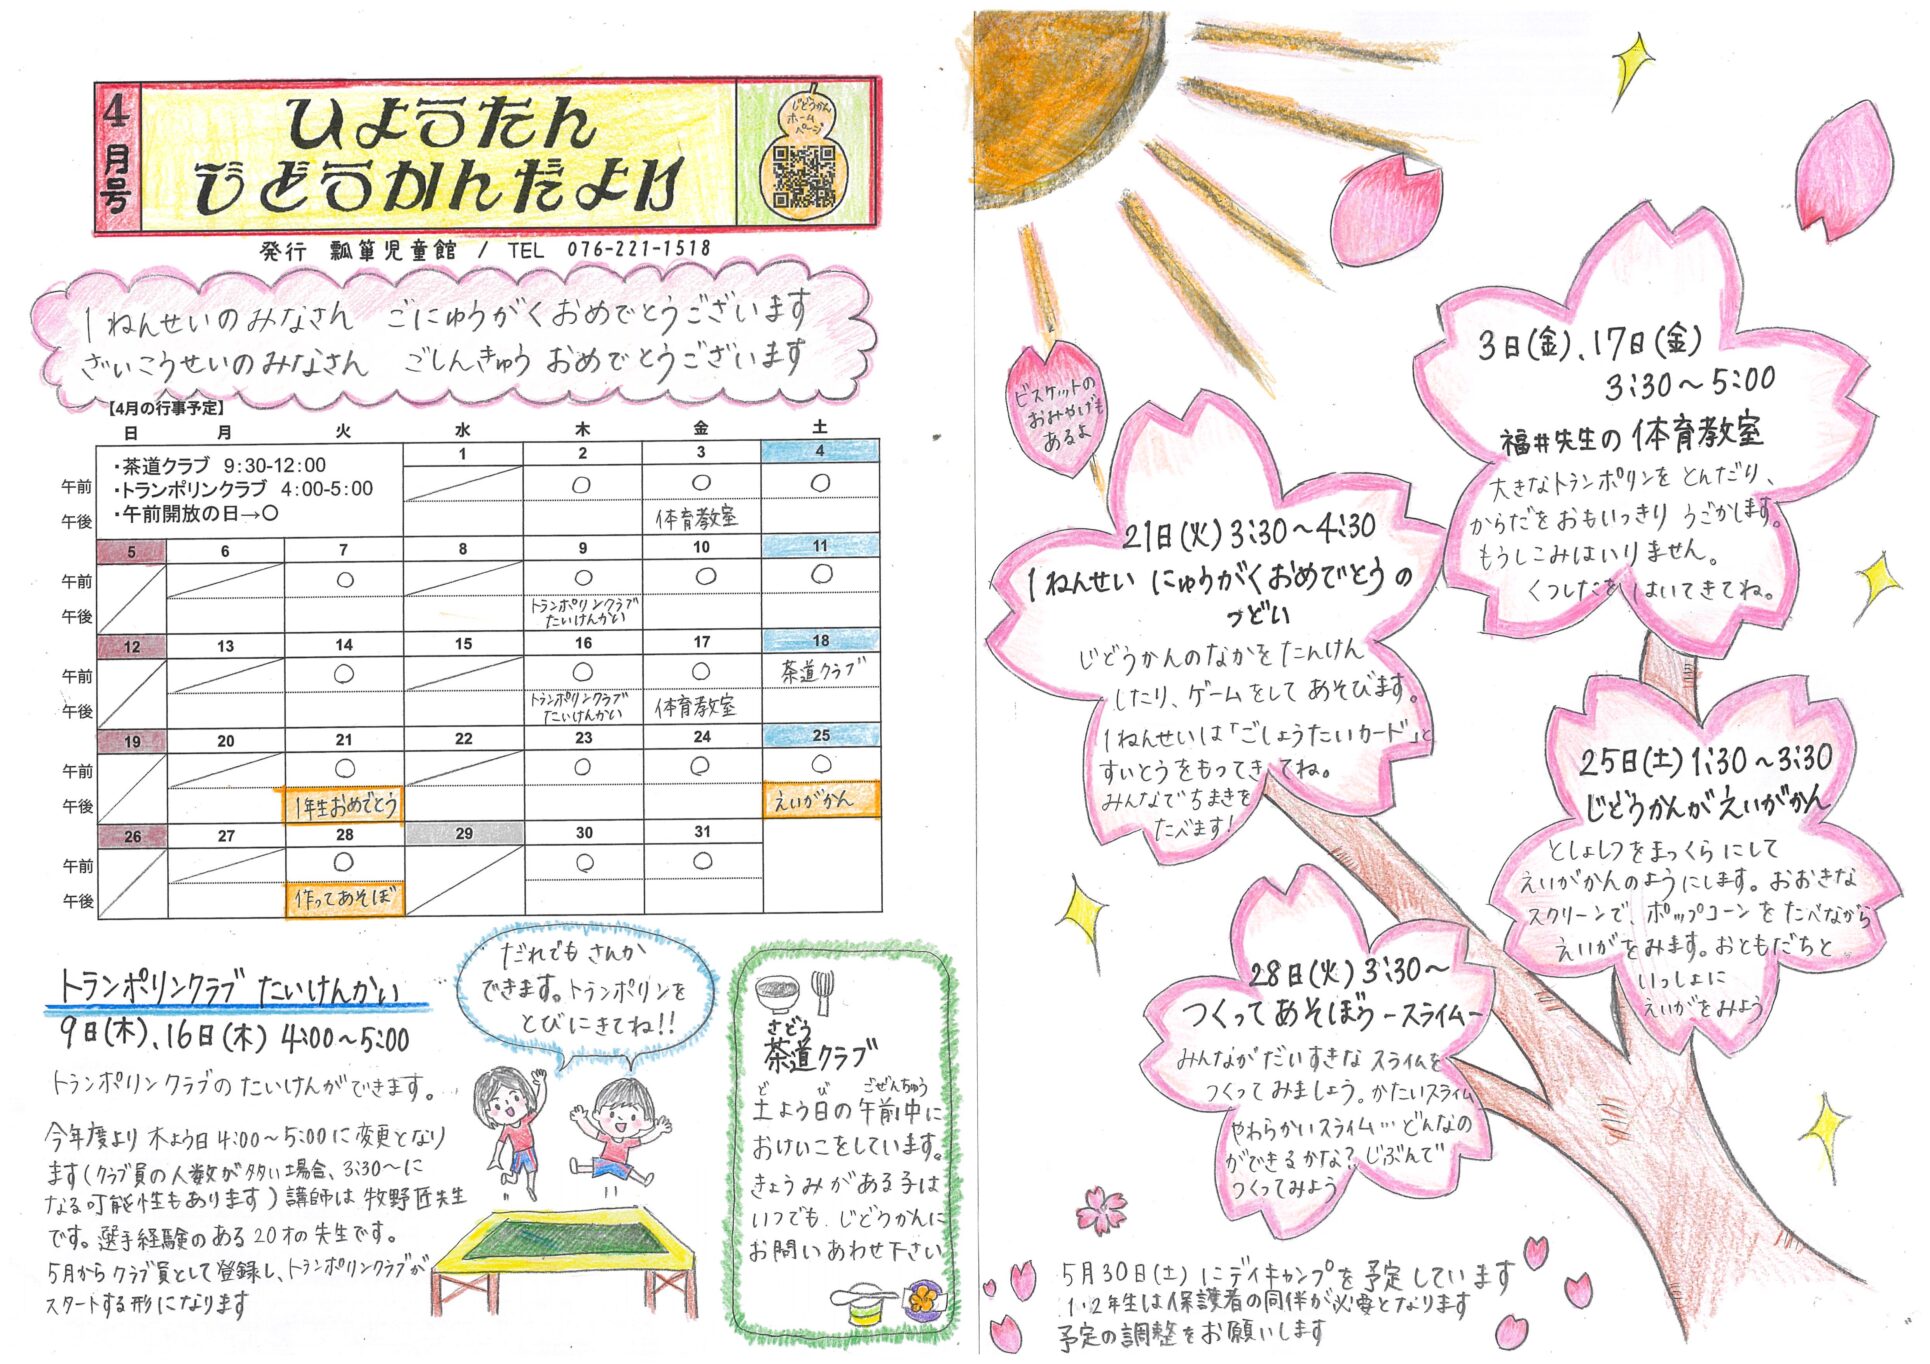 4月号
ひょうたん
じどうかんだより
じどうかん
ホーム
ページ
発行 瓢箪児童館 / TEL 076-221-1518
1ねんせいのみなさん ごにゅうがくおめでとうございます
ざいこうせいのみなさん ごしんきゅう おめでとうございます
【4月の行事予定】
日 月 火 水 木 金 土
・茶道クラブ 9:30-12:00
・トランポリンクラブ 4:00-5:00
・午前開放の日→○
1 2 3 4
午前 ○ ○ ○
午後 体育教室
5 6 7 8 9 10 11
午前 ○ ○ ○ ○
午後 トランポリンクラブ
たいけんかい
12 13 14 15 16 17 18
午前 ○ ○ ○ 茶道クラブ
午後 トランポリンクラブ
たいけんかい 体育教室
19 20 21 22 23 24 25
午前 ○ ○ ○ ○
午後 1年生おめでとう えいがかん
26 27 28 29 30 31
午前 ○ ○ ○
午後 作ってあそぼ
トランポリンクラブ たいけんかい
9日(木)、16日(木) 4:00～5:00
トランポリンクラブの たいけんができます。
今年度より 木よう日 4:00～5:00に変更となり
ます(クラブ員の人数が多い場合、3:30～に
なる可能性もあります)講師は 牧野匠先生
です。選手経験のある20才の先生です。
5月からクラブ員として登録し、トランポリンクラブが
スタートする形になります
だれでも さんか
できます。トランポリンを
とびにきてね!!
さどう
茶道クラブ
ど び ごぜんちゅう
土よう日の午前中に
おけいこをしています。
きょうみがある子は
いつでも、じどうかんに
お問いあわせ下さい
ビスケットの
おみやげも
あるよ
3日(金)、17日(金)
3:30～5:00
福井先生の 体育教室
大きなトランポリンを とんだり、
からだをおもいっきり うごかします。
もうしこみはいりません。
くつしたをはいてきてね。
21日(火) 3:30～4:30
1ねんせい にゅうがくおめでとうの
つどい
じどうかんのなかをたんけん
したり、ゲームをして あそびます。
1ねんせいは「ごしょうたいカード」と
すいとうをもってきてね。
みんなでちまきを
たべます!
25日(土) 1:30～3:30
じどうかんがえいがかん
としょしつをまっくらにして
えいがかんのようにします。おおきな
スクリーンで、ポップコーンをたべながら
えいがをみます。おともだちと
いっしょに
えいがをみよう
28日(火) 3:30～
つくってあそぼう-スライム-
みんながだいすきな スライムを
つくってみましょう。かたいスライム
やわらかいスライム…どんなの
ができるかな?じぶんで
つくってみよう
5月30日(土)にデイキャンプを予定しています
1・2年生は保護者の同伴が必要となります
予定の調整をお願いします